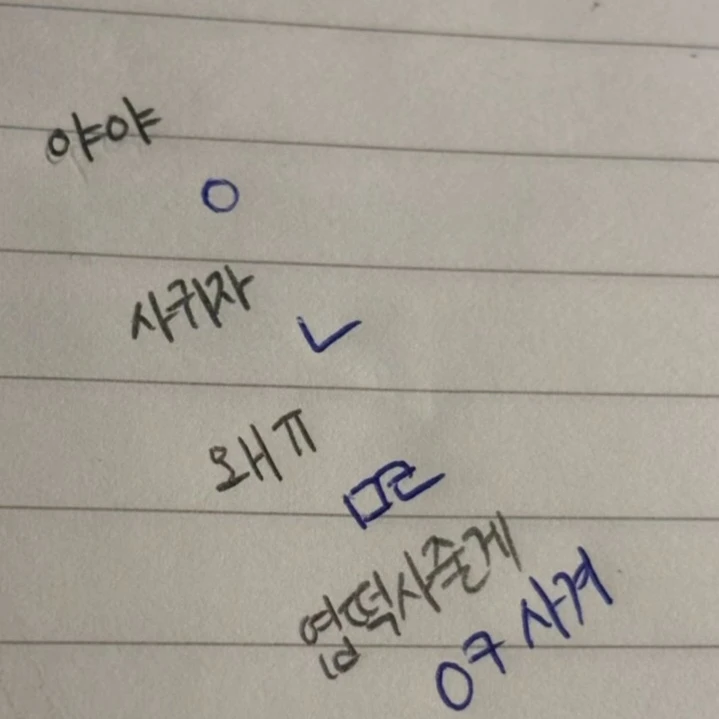 야야
ㅇ
사귀자
ㄴ
왜ㅠ
ㅁㄹ
엽떡사줄게
ㅇㅋ 사겨